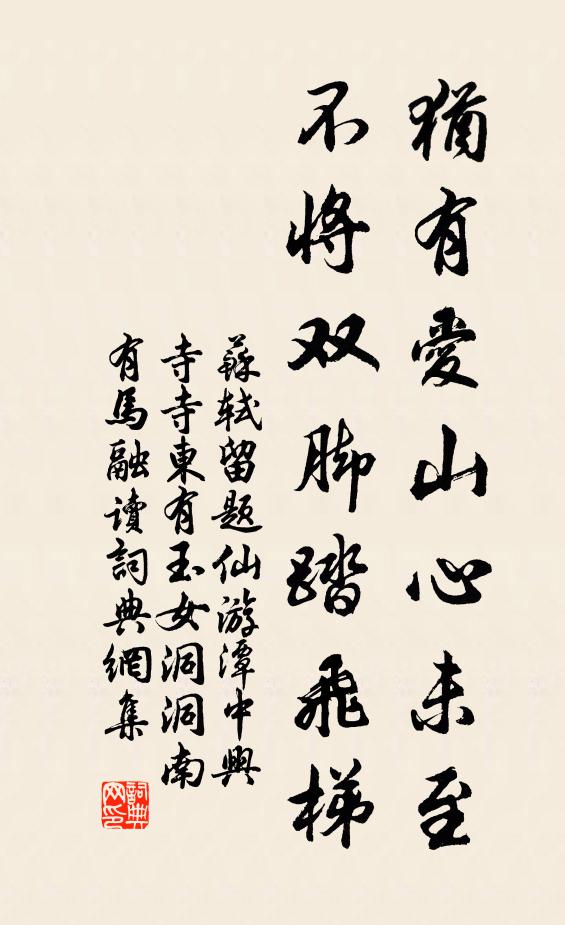 猶有愛山心未至
不将双脚踏飛梯
蘇軾留题仙游潭中興
寺寺東有玉女洞洞南
有馬融讀詞典網集
詞典网印